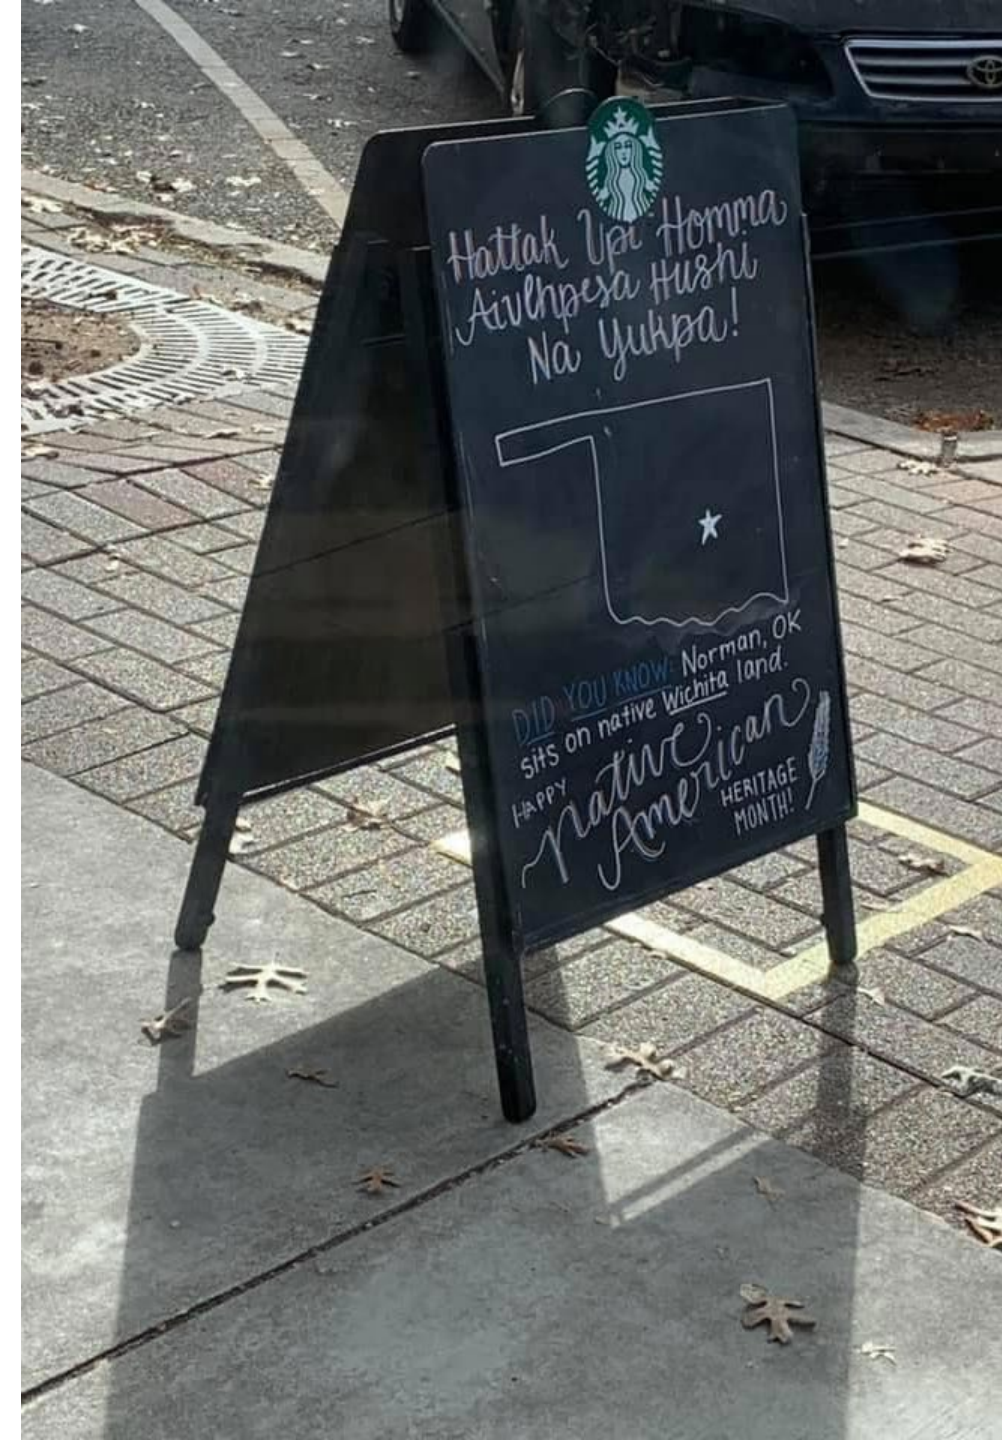 Hattak Vpi Homma
Aivlhpesa Hushi
Na Yukpa!
DID YOU KNOW: Norman, OK
sits on native Wichita land.
HAPPY
native
American
HERITAGE
MONTH!